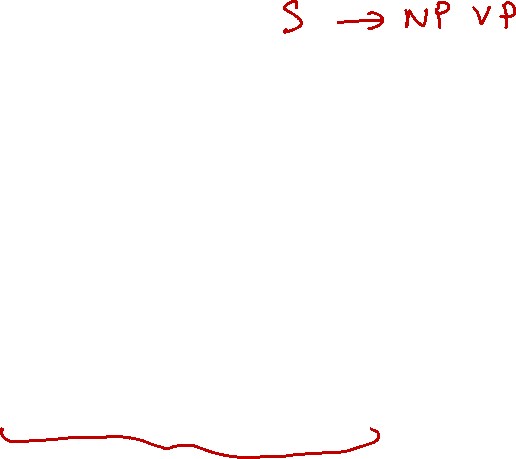 S → NP VP